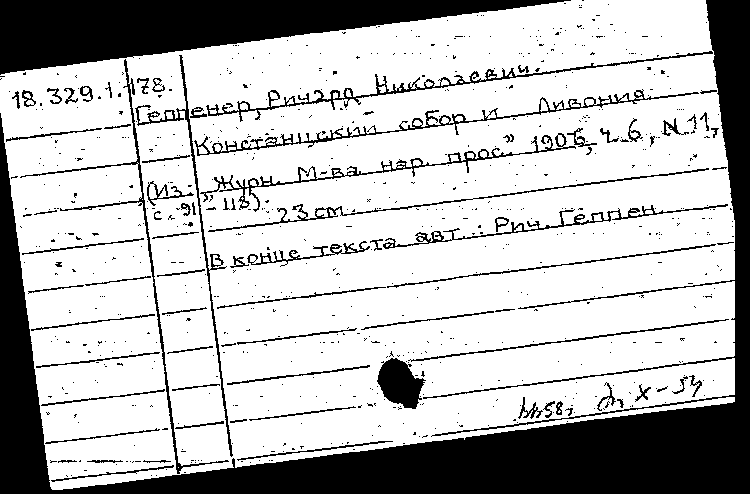 18.329.1.178.
Геппенер, Ричард Николаевич.
Констанцский собор и Ливония.
(Из: „Журн. М-ва нар. прос." 1906, ч. 6, N 11,
с. 91 - 118).
23 см.
В конце текста авт.: Рич. Геппен.
Х-54